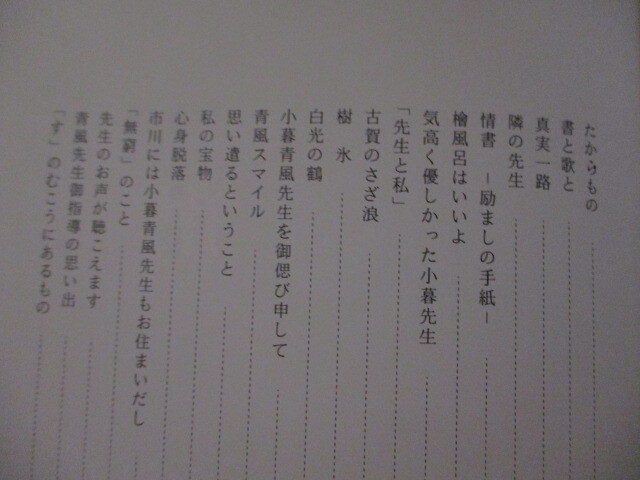 たからもの
書と歌と
真実一路
隣の先生
情書 ―励ましの手紙―
檜風呂はいいよ
気高く優しかった小暮先生
「先生と私」
古賀のさざ浪
樹 氷
白光の鶴
小暮青風先生を御偲び申して
青風スマイル
思い遣るということ
私の宝物
心身脱落
市川には小暮青風先生もお住まいだし
「無窮」のこと
先生のお声が聴こえます
青風先生御指導の思い出
「す」のむこうにあるもの